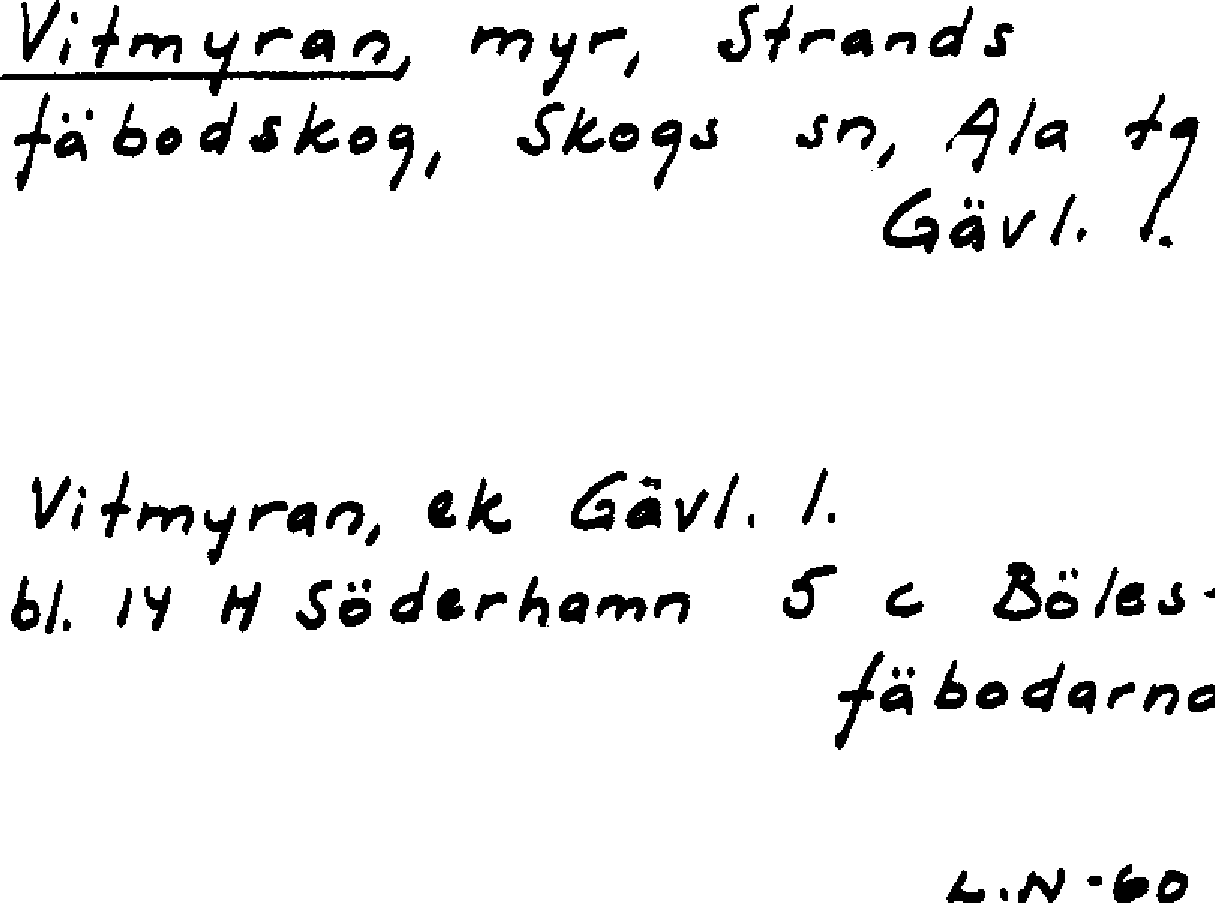 Vitmyran, myr, Strands
fäbodskog, Skogs sn, Ala tg
Gävl. l.
Vitmyran, ek Gävl. l.
bl. 14 H Söderhamn 5 c Böles-
fäbodarna
L.N -60